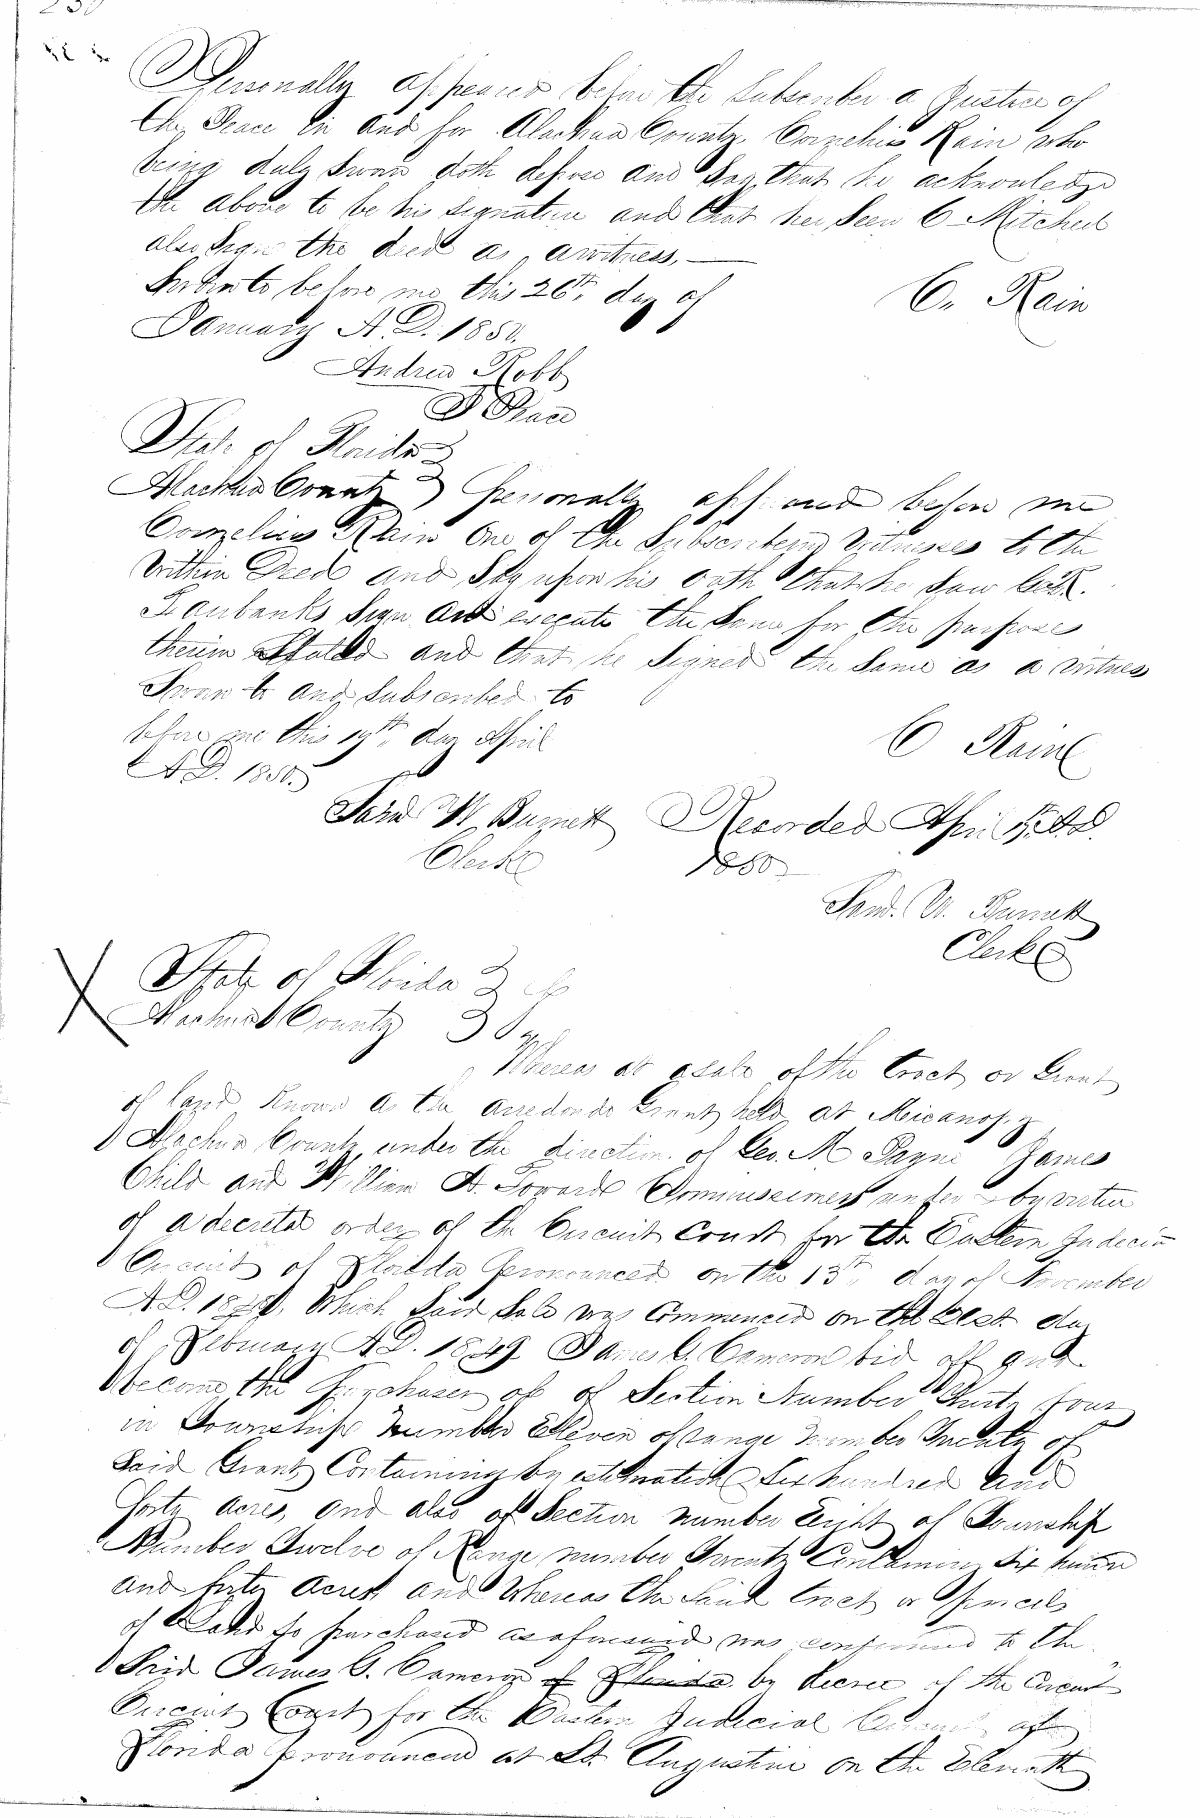 230
Personally appeared before the Subscriber a Justice of
the Peace in and for Alachua County Cornelius Rain who
being duly Sworn doth depose and Say that he acknowledge
the above to be his Signature and that he Seen C Mitchell
also Sign the deed as a witness.
Sworn to before me this 26th day of
C. Rain
January A.D. 1850.
Andrew Robb
J Peace
State of Florida
Alachua County Personally appeared before me
Cornelius Rain One of the Subscribing Witnesses to the
Within Deed and Say upon his oath that he Saw
Fairbanks Sign and execute the Same for the purposes
therein Stated and that he Signed the Same as a witness
Sworn to and Subscribed to
before me this day April
C Rain
A.D. 1850.
Saml W. Burnett Recorded April A.D.
Clerk 1850
Saml. W. Burnett
Clerk
State of Florida
Alachua County
Whereas at a Sale of the tract or Grant
of land Known as the arredondo Grant held at Micanopy
Alachua County under the direction of Geo. M Payne James
Child and William A. Forward Commissioners under & by virtue
of a decretal order of the Circuit Court for the Eastern Judicial
Circuit of Florida pronounced on the 13th day of November
A.D. Which Said Sale was Commenced on the day
of February A.D. 1849 James G. Cameron bid off and
become the purchaser of of Section Number Thirty four
in Township Number Eleven of range Number Twenty of
Said Grant Containing by estimation Six hundred and
forty acres, and also of Section number Eight of Township
Number Twelve of Range number Twenty Containing Six
and forty acres and Whereas the Said tract or parcels
of Land So purchased as aforesaid was confirmed to the
Said James G. Cameron of Florida by decree of the Circuit
Circuit Court for the Eastern Judicial Circuit of
Florida pronounced at St. Augustine on the Eleventh